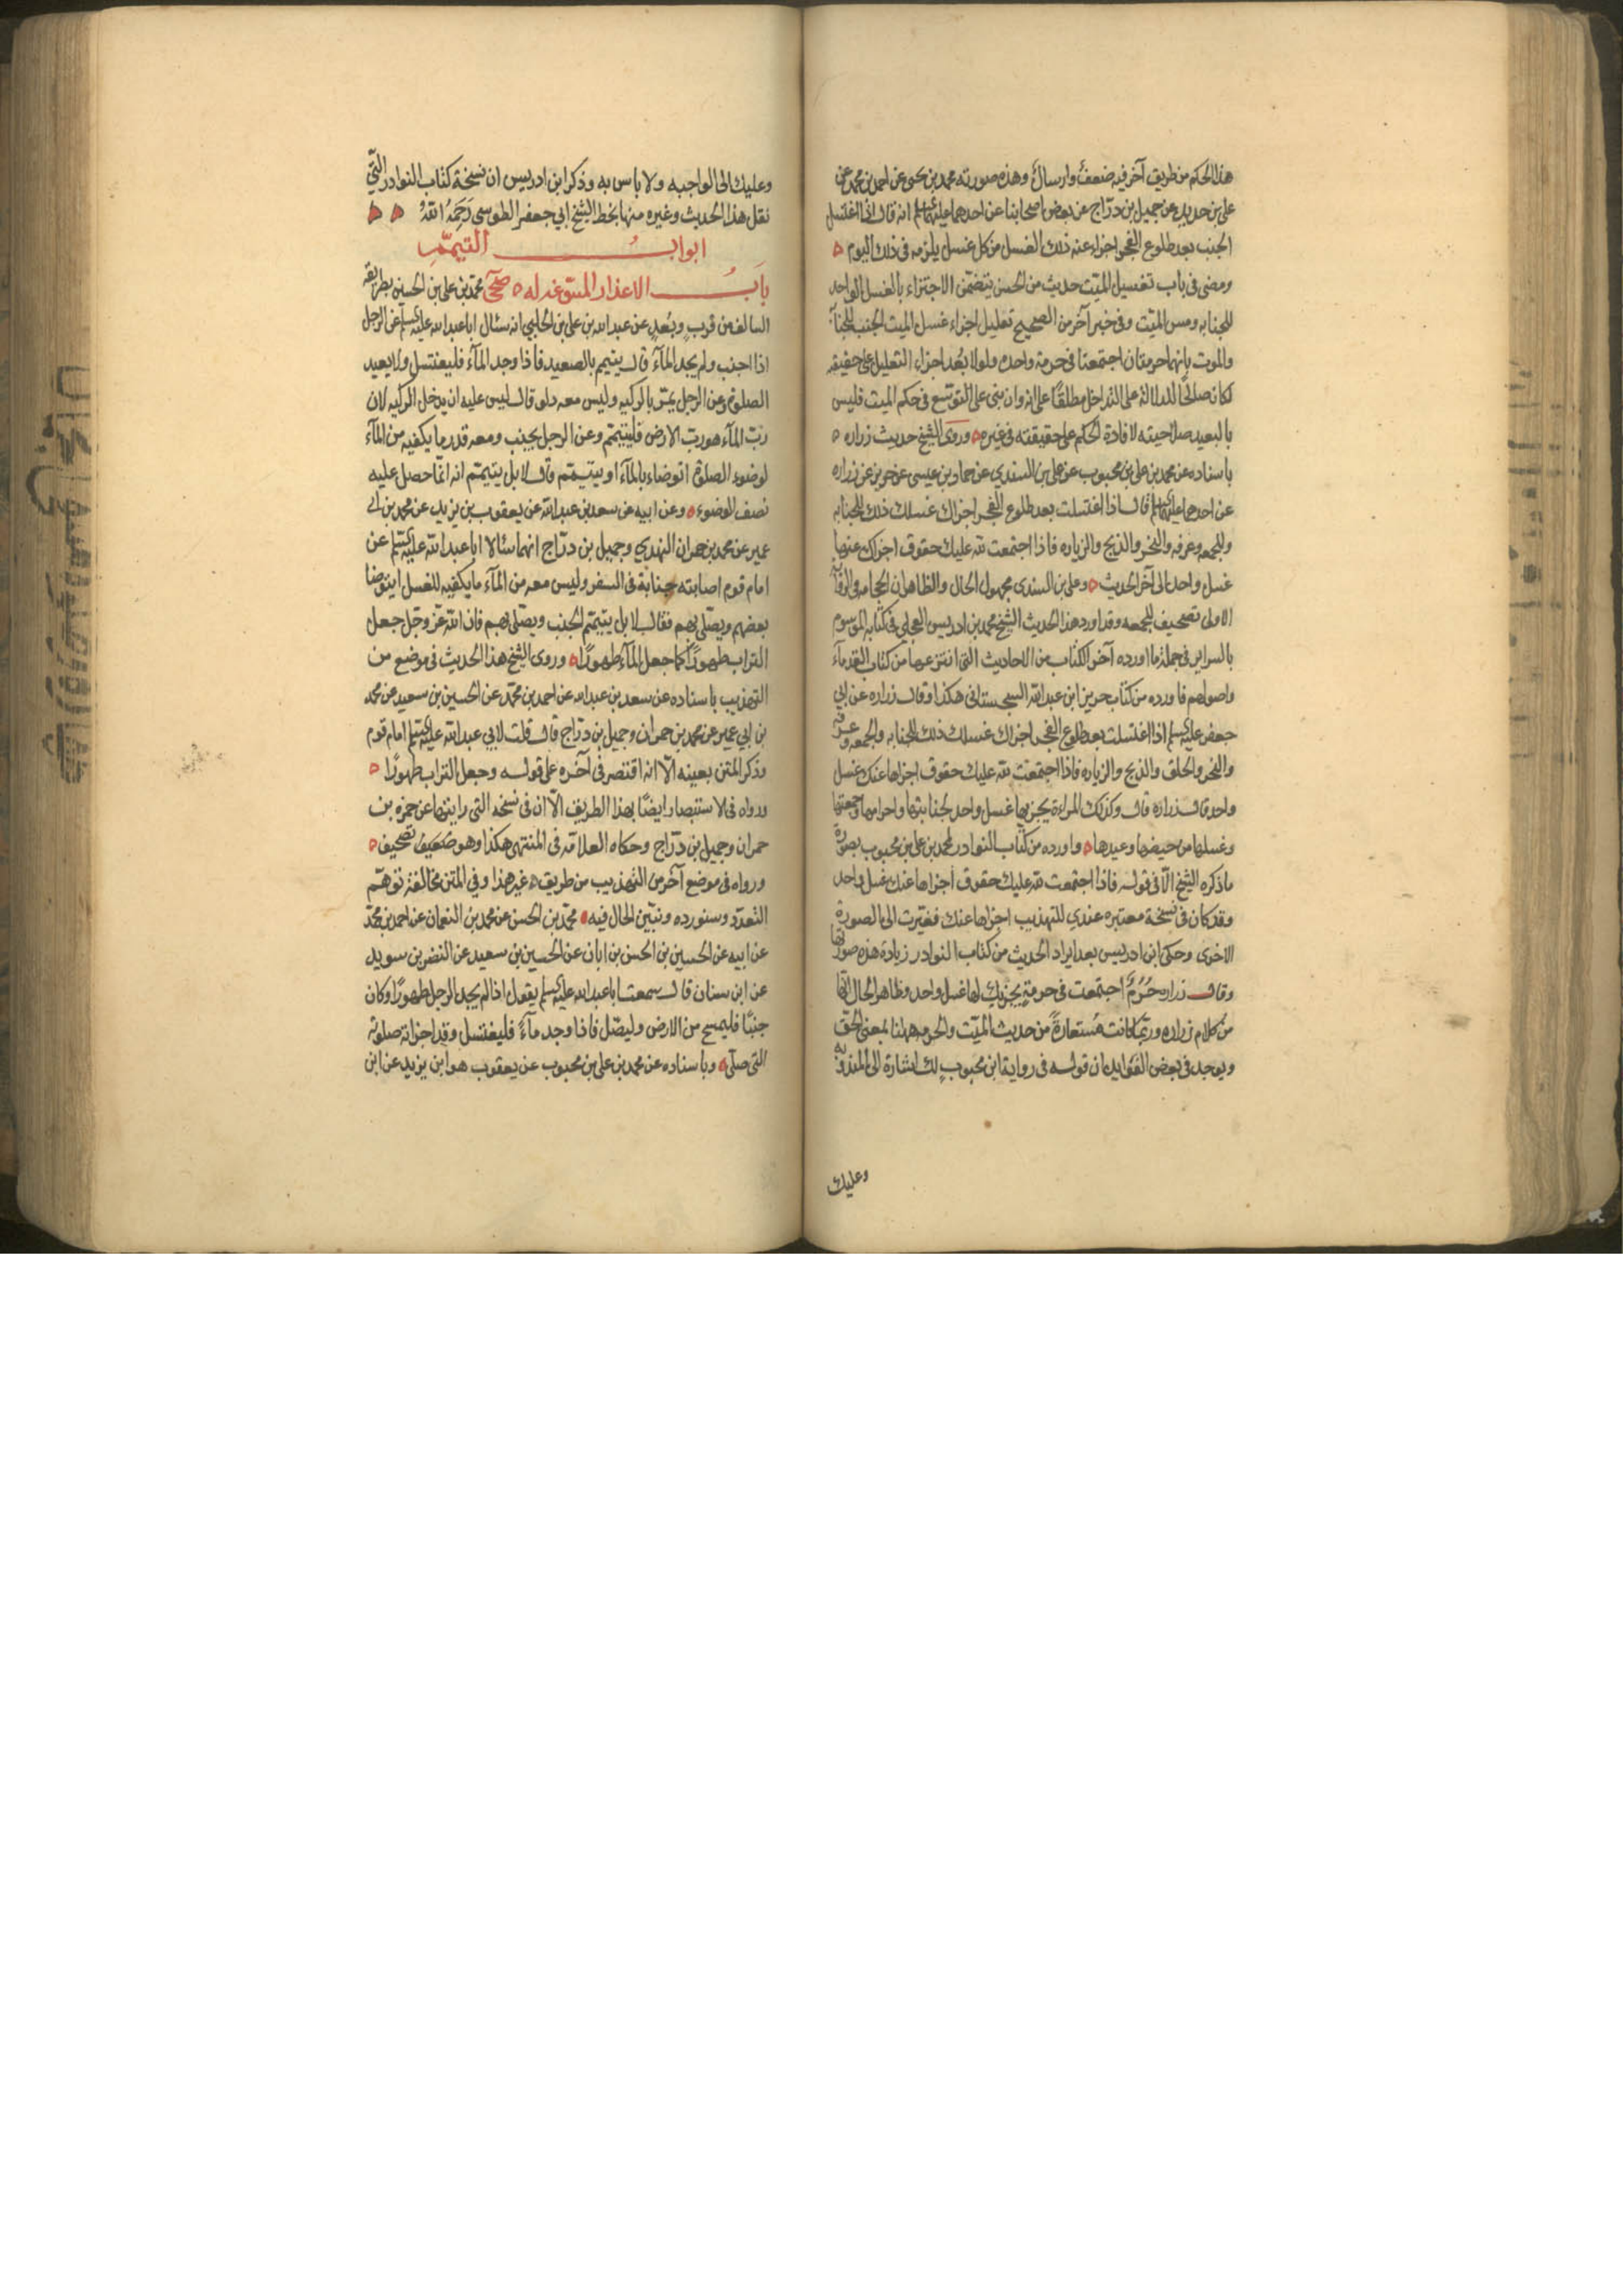 هذا الحكم من طريق آخر فيه ضعف وارسال وهذه صورته محمد بن يحيى عن احمد بن محمد عن
علي بن حديد عن جميل بن دراج عن بعض اصحابنا عن احدهما عليهما السلم انه قال اذا اغتسل
الجنب بعد طلوع الفجر اجزاء عنه ذلك الغسل من كل غسل يلزمه في ذلك اليوم
ومضى في باب تغسيل الميت حديث من الحسن يتضمن الاجتزاء بالغسل الواحد
للجنابه ومس الميت وفي خبر آخر من الصحيح تعليل اجزاء غسل الميت الجنب للجنابة
والموت بانهما حرمتان اجتمعتا في حرمة واحده ولولا بُعد اجزاء التعليل على حقيقته
لكان صالحًا للدلالة على التداخل مطلقًا على انه وان بنى على التوسع في حكم الميت فليس
بالبعيد صلاحيته لافادة الحكم على حقيقته في غيره وروى الشيخ حديث زراره
باسناده عن محمد بن علي بن محبوب عن علي بن السندي عن حماد بن عيسى عن حريز عن زراره
عن احدهما عليهما السلم قال اذا اغتسلت بعد طلوع الفجر اجزاك غسلك ذلك للجنابه
وللجمعه وعرفه والنحر والذبح والزياره فاذا اجتمعت لله عليك حقوق اجزاك عنها
غسل واحد الى آخر الحديث وعلي بن السندي مجهول الحال والظاهر ان الحجامه في الرواية
الاولى تصحيف للجمعه وقد اورد هذا الحديث الشيخ محمد بن ادريس العجلي في كتابه الموسوم
بالسراير في جملة ما اورده آخر الكتاب من الاحاديث التي انتزعها من كتاب القدماء
واصولهم فاورده من كتاب حريز ابن عبدالله السجستاني هكذا وقال زراره عن ابي
جعفر عليه السلم اذا اغتسلت بعد طلوع الفجر اجزاك غسلك ذلك للجنابه والجمعه وعرفه
والنحر والحلق والذبح والزياره فاذا اجتمعت لله عليك حقوق اجزاها عنك غسل
واحد قال زراره قال وكذلك المراة يجزيها غسل واحد لجنابتها واحرامها وجمعتها
وغسلها من حيضها وعيدها واورده من كتاب النوادر لمحمد بن علي بن محبوب بصورة
ماذكره الشيخ الا في قوله فاذا اجتمعت لله عليك حقوق اجزاها عنك غسل واحد
وقد كان في نسخة معتبره عندي للتهذيب اجزاها عنك فغيرت الى الصورة
الاخرى وحكى ابن ادريس بعد ايراد الحديث من كتاب النوادر زيادة هذه صورتها
وقال زراره حُرُمٌ اجتمعت في حرمةٍ يجزيك لها غسل واحد وظاهر الحال انها
من كلام زراره وربما كانت مُستعارةً من حديث الميت والحرمه هنا بمعنى الحق
ويوجد في بعض الفوايد ان قوله في رواية ابن محبوب لك اشارة الى المندوبه
وعليك
وعليك الى الواجبه ولا باس به وذكر ابن ادريس ان نسخة كتاب النوادر التي
نقل هذا الحديث وغيره منها بخط الشيخ ابي جعفر الطوسي رَحِمَهُ اللهُ
ابوابُ التيمّم
بابُ الاعذار المسوغه له صحى محمد بن علي بن الحسين بطريقه
السالف من قربٍ وبُعدٍ عن عبد الله بن علي الحلبي انه سئال ابا عبدالله عليه السلم عن الرجل
اذا اجنب ولم يجد المآء قال يتيمم بالصعيد فاذا وجد المآء فليغتسل ولا يعيد
الصلوة وعن الرجل يمر بالركيه وليس معه دلو قال ليس عليه ان يدخل الركيه لان
رب المآء هو رب الارض فليتيمم وعن الرجل يجنب ومعه قدر ما يكفيه من المآء
لوضوء الصلوة اتوضاء بالمآء او يتيمم قال لا بل يتيمم انه انما حصل عليه
نصف الوضوء وعن ابيه عن سعد بن عبدالله عن يعقوب بن يزيد عن محمد بن ابي
عمير عن محمد بن حمران النهدي وجميل بن دراج انهما سئالا ابا عبدالله عليه السلم عن
امام قوم اصابته جنابة في السفر وليس معه من المآء ما يكفيه للغسل ايتوضا
بعضهم ويصلي بهم فقال لا بل يتيمم الجنب ويصلي بهم فان الله عز وجل جعل
التراب طهورًا كما جعل المآء طهورًا وروى الشيخ هذا الحديث في موضع من
التهذيب باسناده عن سعد بن عبدالله عن احمد بن محمد عن الحسين بن سعيد عن محمد
بن ابي عمير عن محمد بن حمران وجميل بن دراج قال قلت لابي عبدالله عليه السلم امام قوم
وذكر المتن بعينه الا انه اقتصر في آخره على قوله وجعل التراب طهورًا
ورواه في الاستبصار ايضًا بهذا الطريق الا ان في نسخه التي رايتها عن حمزه بن
حمران وجميل بن دراج وحكاه العلامه في المنتهى هكذا وهو ضعيف تصحيف
ورواه في موضع آخر من التهذيب من طريق غير هذا وفي المتن مخالفة توهم
التعدد وسنورده ونبين الحال فيه محمد بن الحسن عن محمد بن النعمان عن احمد بن محمد
عن ابيه عن الحسين بن الحسن بن ابان عن الحسين بن سعيد عن النضر بن سويد
عن ابن سنان قال سمعت ابا عبدالله عليه السلم يقول اذا لم يجد الرجل طهورًا وكان
جنبًا فليمسح من الارض وليصل فاذا وجد مآءً فليغتسل وقد اجزاته صلوته
التي صلى وباسناده عن محمد بن علي بن محبوب عن يعقوب هو ابن يزيد عن ابن